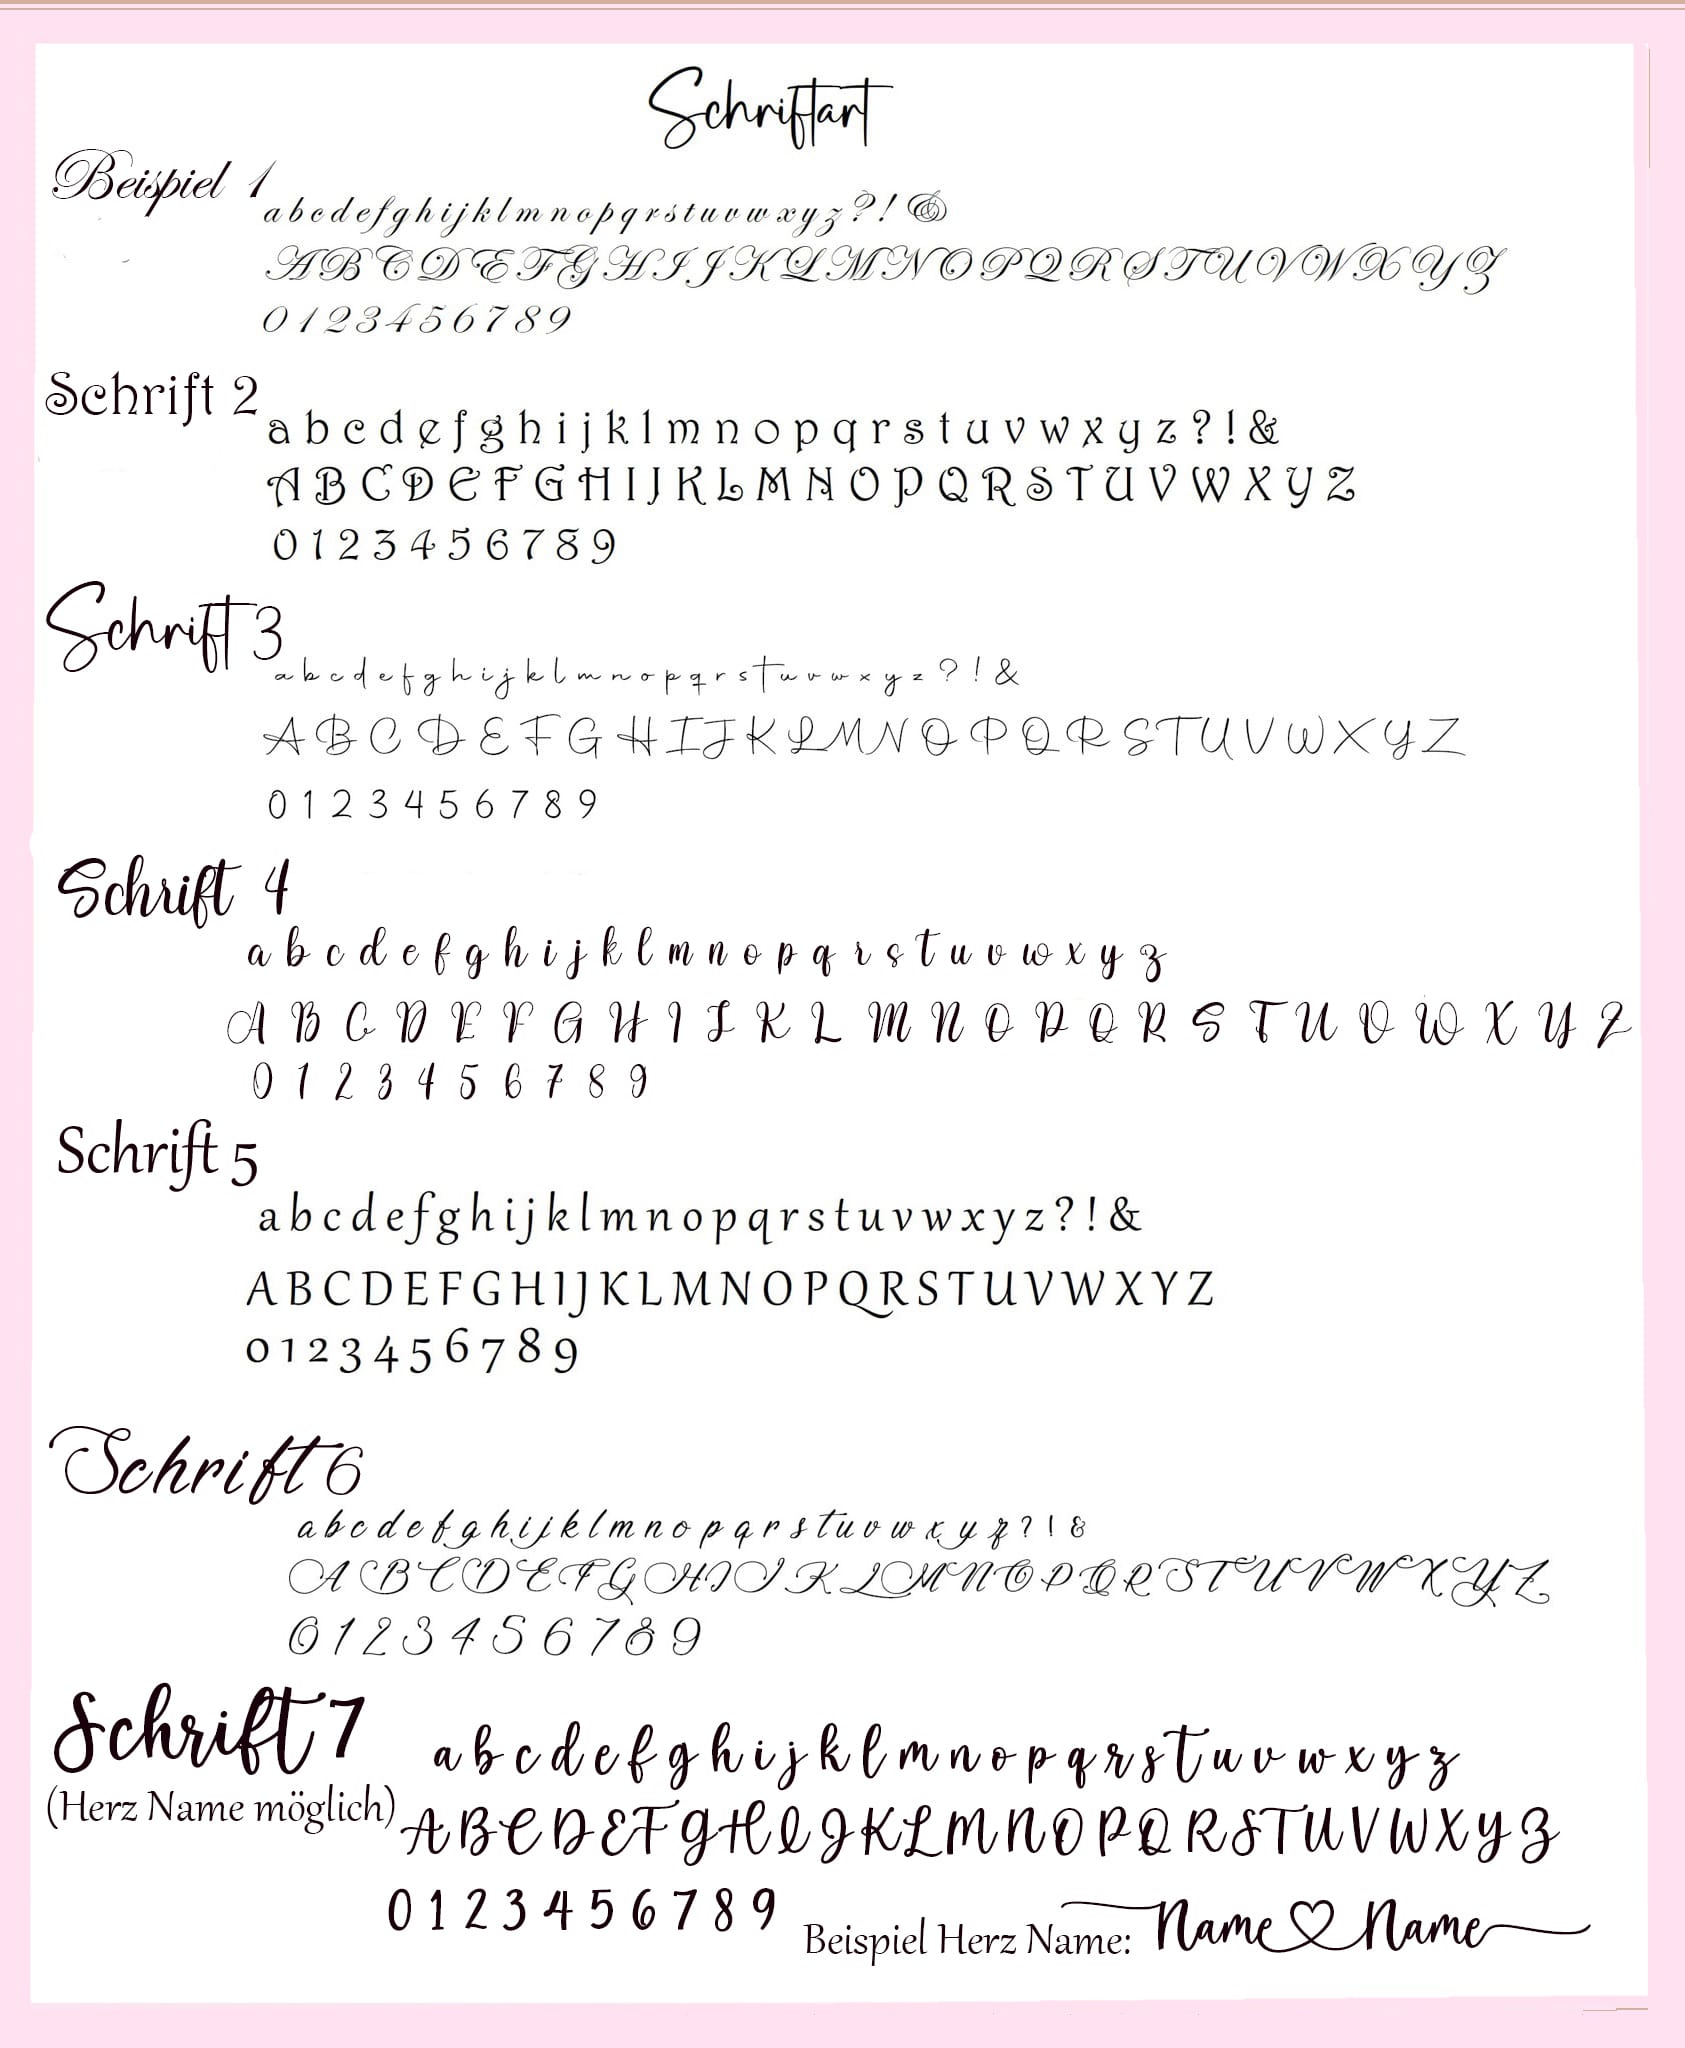 Schriftart
Beispiel 1
a b c d e f g h i j k l m n o p q r s t u v w x y z ? ! &
A B C D E F G H I J K L M N O P Q R S T U V W X Y Z
0 1 2 3 4 5 6 7 8 9
Schrift 2
a b c d e f g h i j k l m n o p q r s t u v w x y z ? ! &
A B C D E F G H I J K L M N O P Q R S T U V W X Y Z
0 1 2 3 4 5 6 7 8 9
Schrift 3
a b c d e f g h i j k l m n o p q r s t u v w x y z ? ! &
A B C D E F G H I J K L M N O P Q R S T U V W X Y Z
0 1 2 3 4 5 6 7 8 9
Schrift 4
a b c d e f g h i j k l m n o p q r s t u v w x y z
A B C D E F G H I J K L M N O P Q R S T U V W X Y Z
0 1 2 3 4 5 6 7 8 9
Schrift 5
a b c d e f g h i j k l m n o p q r s t u v w x y z ? ! &
A B C D E F G H I J K L M N O P Q R S T U V W X Y Z
0 1 2 3 4 5 6 7 8 9
Schrift 6
a b c d e f g h i j k l m n o p q r s t u v w x y z ? ! &
A B C D E F G H I J K L M N O P Q R S T U V W X Y Z
0 1 2 3 4 5 6 7 8 9
Schrift 7
a b c d e f g h i j k l m n o p q r s t u v w x y z
(Herz Name möglich)
A B C D E F G H I J K L M N O P Q R S T U V W X Y Z
0 1 2 3 4 5 6 7 8 9
Beispiel Herz Name: Name♡Name